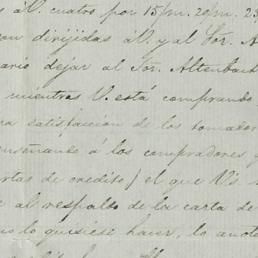 s á V. cuatro por 15/m. 20/m. 25
on dirijidas á V. y al Sor. A
ario dejar al Sor. Altenbach
mientras V. está comprando
ra satisfaccion de los tomador
enseñando á los compradores y
rtas de credito) el que V.s
e al respaldo de la carta de
no lo quisiese hacer, lo anote